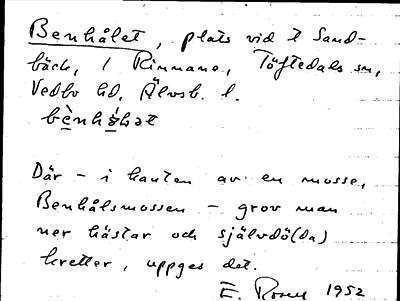 Benhålet, plats vid t Sand-
bäck, i Rinnane, Töftedals sn,
Vedbo hd, Älvsb. l.
Där – i kanten av en mosse,
Benhålsmossen – grov man
ner hästar och självdö(da)
kretter, uppges det.
E. Rosell 1952